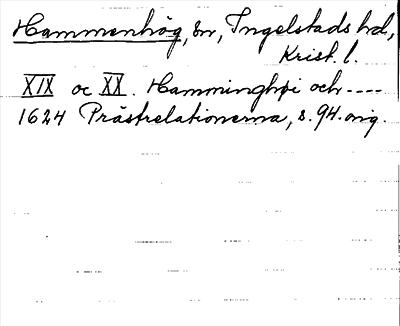 Hammenhög, sn, Ingelstads hd,
Krist. l.
XIX oc XX. Hamminghøi och ----
1624 Prästrelationerna, s. 94. orig.